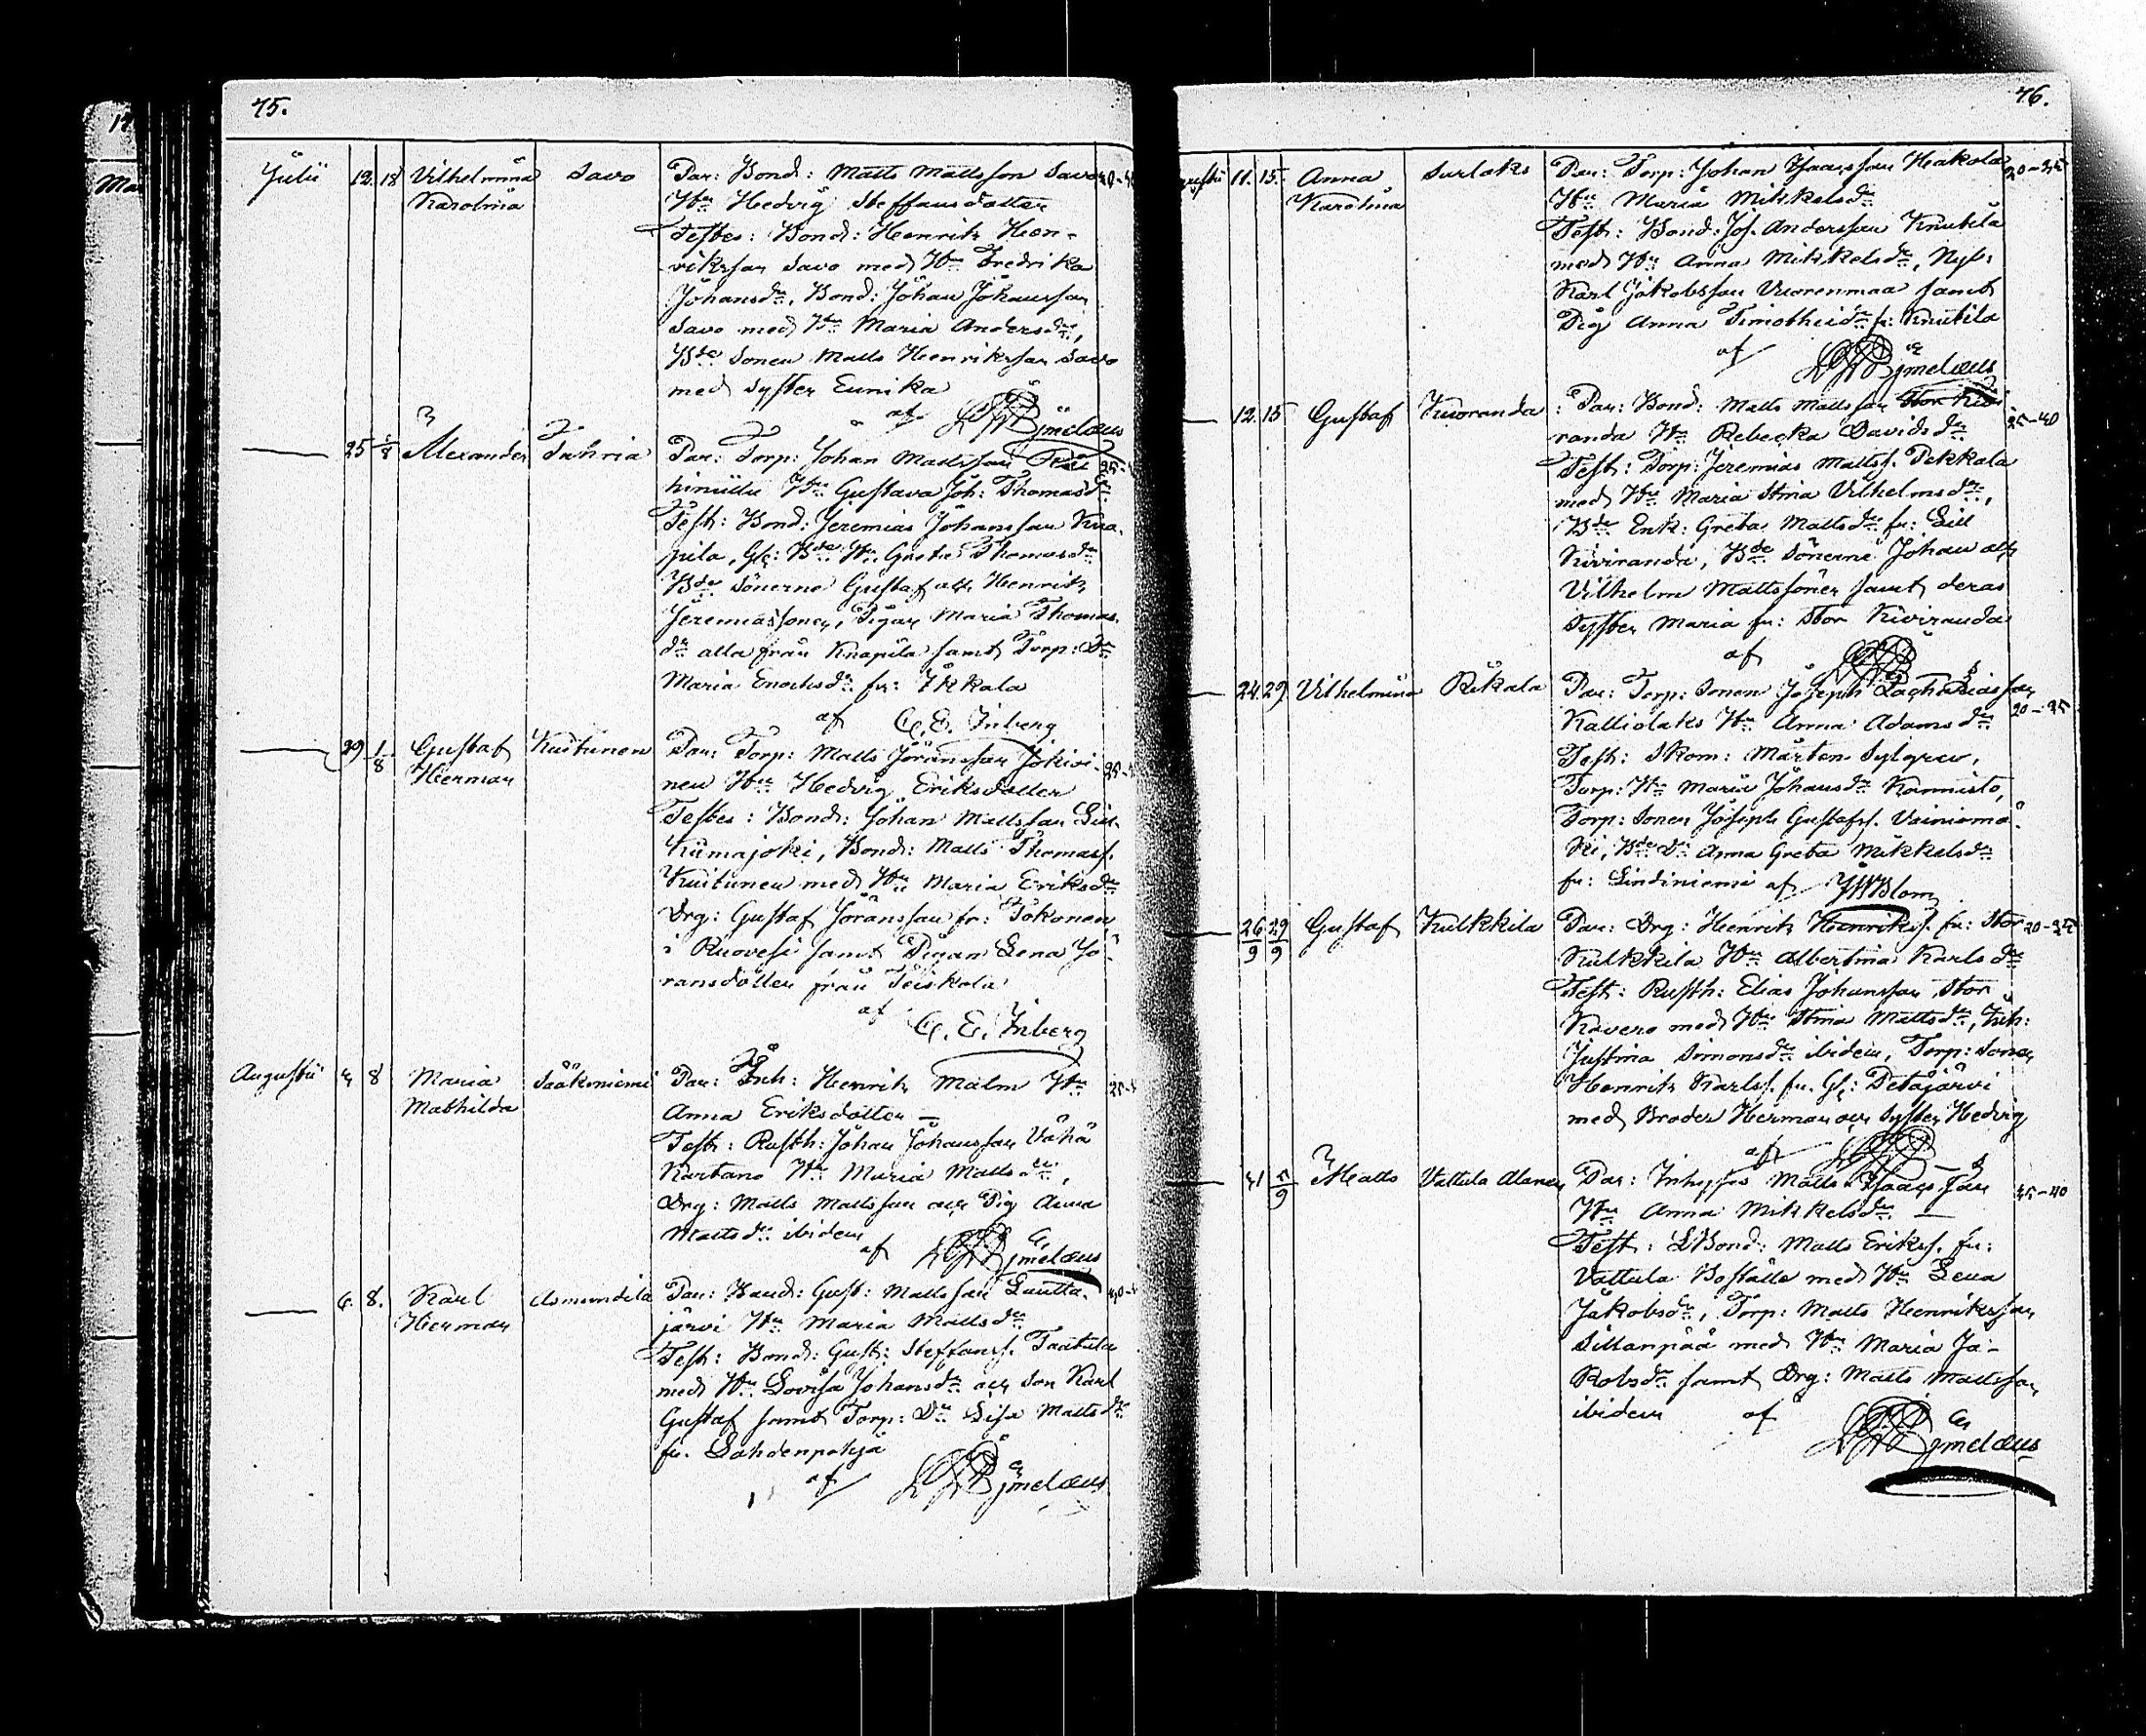 75.
Julii 12. 18 Vilhelmina Savo Par: Bond: Matts Mattsson Savo
Karolina Hu Hedvig Steffansdotter
Testes: Bond: Henrik Hen-
riksson Savo med Hu Fredrika
Johansdr, Bond: Johan Johansson
Savo med Hu Maria Andersdr,
Bde Sonen Matts Henriksson Savo
med Syster Eunika
af Bjmelæus
25 1/8 Alexander Tuhria Par: Torp: Johan Mattsson
Hu Gustava Joh: Thomasdr
Test: Bond: Jeremias Johansson Kna-
pila, Gl: Bde Hu Greta Thomasdr
Bde Sönerne Gustaf och Henrik
Jeremiassöner, Pigan Maria Thomas-
dr alla från Knapila samt Torp: Dr
Maria Enochsdr fr: Ikkala
af C. E. Inberg
29 1/8 Gustaf Kuitunen Par: Torp: Matts Göransson Jokivi-
Herman nen Hu Hedvig Eriksdotter
Testes: Bond: Johan Mattsson
Kiimajoki, Bond: Matts Thomass.
Kuitunen med Hu Maria Eriksdr
Drg: Gustaf Göransson fr: Tokonen
i Ruovesi samt Pigan Lena Jö-
ransdotter från Teiskola
af C. E. Inberg
Augusti 4 8 Maria Sääksniemi Par: Inh: Henrik Malm Hu
Mathilda Anna Eriksdotter —
Test: Rusth: Johan Johansson Vähä
Kartano Hu Maria Mattsdr,
Drg: Matts Mattsson och Pig Anna
Mattsdr ibidem
af Bjmelæus
6. 8. Karl Asmundila Par: Bond: Gust: Mattsson Lautta-
Herman järvi Hu Maria Mattsdr
Test: Bond: Gust: Steffanss. Taatila
med Hu Lovisa Johansdr och Son Karl
Gustaf samt Torp: Dr Lisa Mattsdr
fr. Lahdenpohja
af Bjmelæus
76.
11. 15. Anna Surlaks Par: Torp: Johan Isaksson Hakola 20-25
Karolina Hu Maria Mikkelsdr
Test: Bond: Jos. Andersson Knutila
med Hu Anna Mikkelsdr, Nyb:
Karl Jakobsson Vuorenmaa samt
Pig Anna Timotheidr fr: Knutila
af Bjmelæus
12. 15 Gustaf Kivoranda Par: Bond: Matts Mattsson Stor Kivi
randa Hu Rebecka Davidsdr 35-40
Test: Torp: Jeremias Mattss. Pekkala
med Hu Maria Stina Vilhelmsdr,
Bde Enk: Greta Mattsdr fr: Lill
Kiviranda, Bde Sönerne Johan och
Vilhelm Mattssöner samt deras
Syster Maria fr: Stor Kiviranda
af
24. 29. Vilhelmina Rekola Par: Torp: Sonen Joseph Zachariasson
Kalliolaks Hu Anna Adamsdr 20-25
Test: Skom: Mårten Sylgren,
Torp: Hu Maria Johansdr Kannisto,
Torp: Sonen Joseph Gustafss. Vainiomä-
ki, Bde Dr Anna Greta Mikkelsdr
fr: Lindiniemi af Blom
26/9 29/9 Gustaf Kulkkila Par: Drg: Henrik Henrikss. fr: Stor 20-25
Kulkkila Hu Albertina Karlsdr
Test: Rusth: Elias Johansson Stor
Kavero med Hu Stina Mattsdr, Inh:
Justina Simonsdr ibidem, Torp: Sonen
Henrik Karlss. fr. Gl: Petäjärvi
med Broder Herman och Syster Hedvig
af
Matts Vattula Alanen Par: Inhyses Matts Isaksson 35-40
Hu Anna Mikkelsdr —
Test: LBond: Matts Erikss. fr:
Vattula Boställe med Hu Lena
Jakobsdr, Torp: Matts Henriksson
Sillanpää med Hu Maria Ja-
kobsdr samt Drg: Matts Mattsson
ibidem af
Bjmelæus